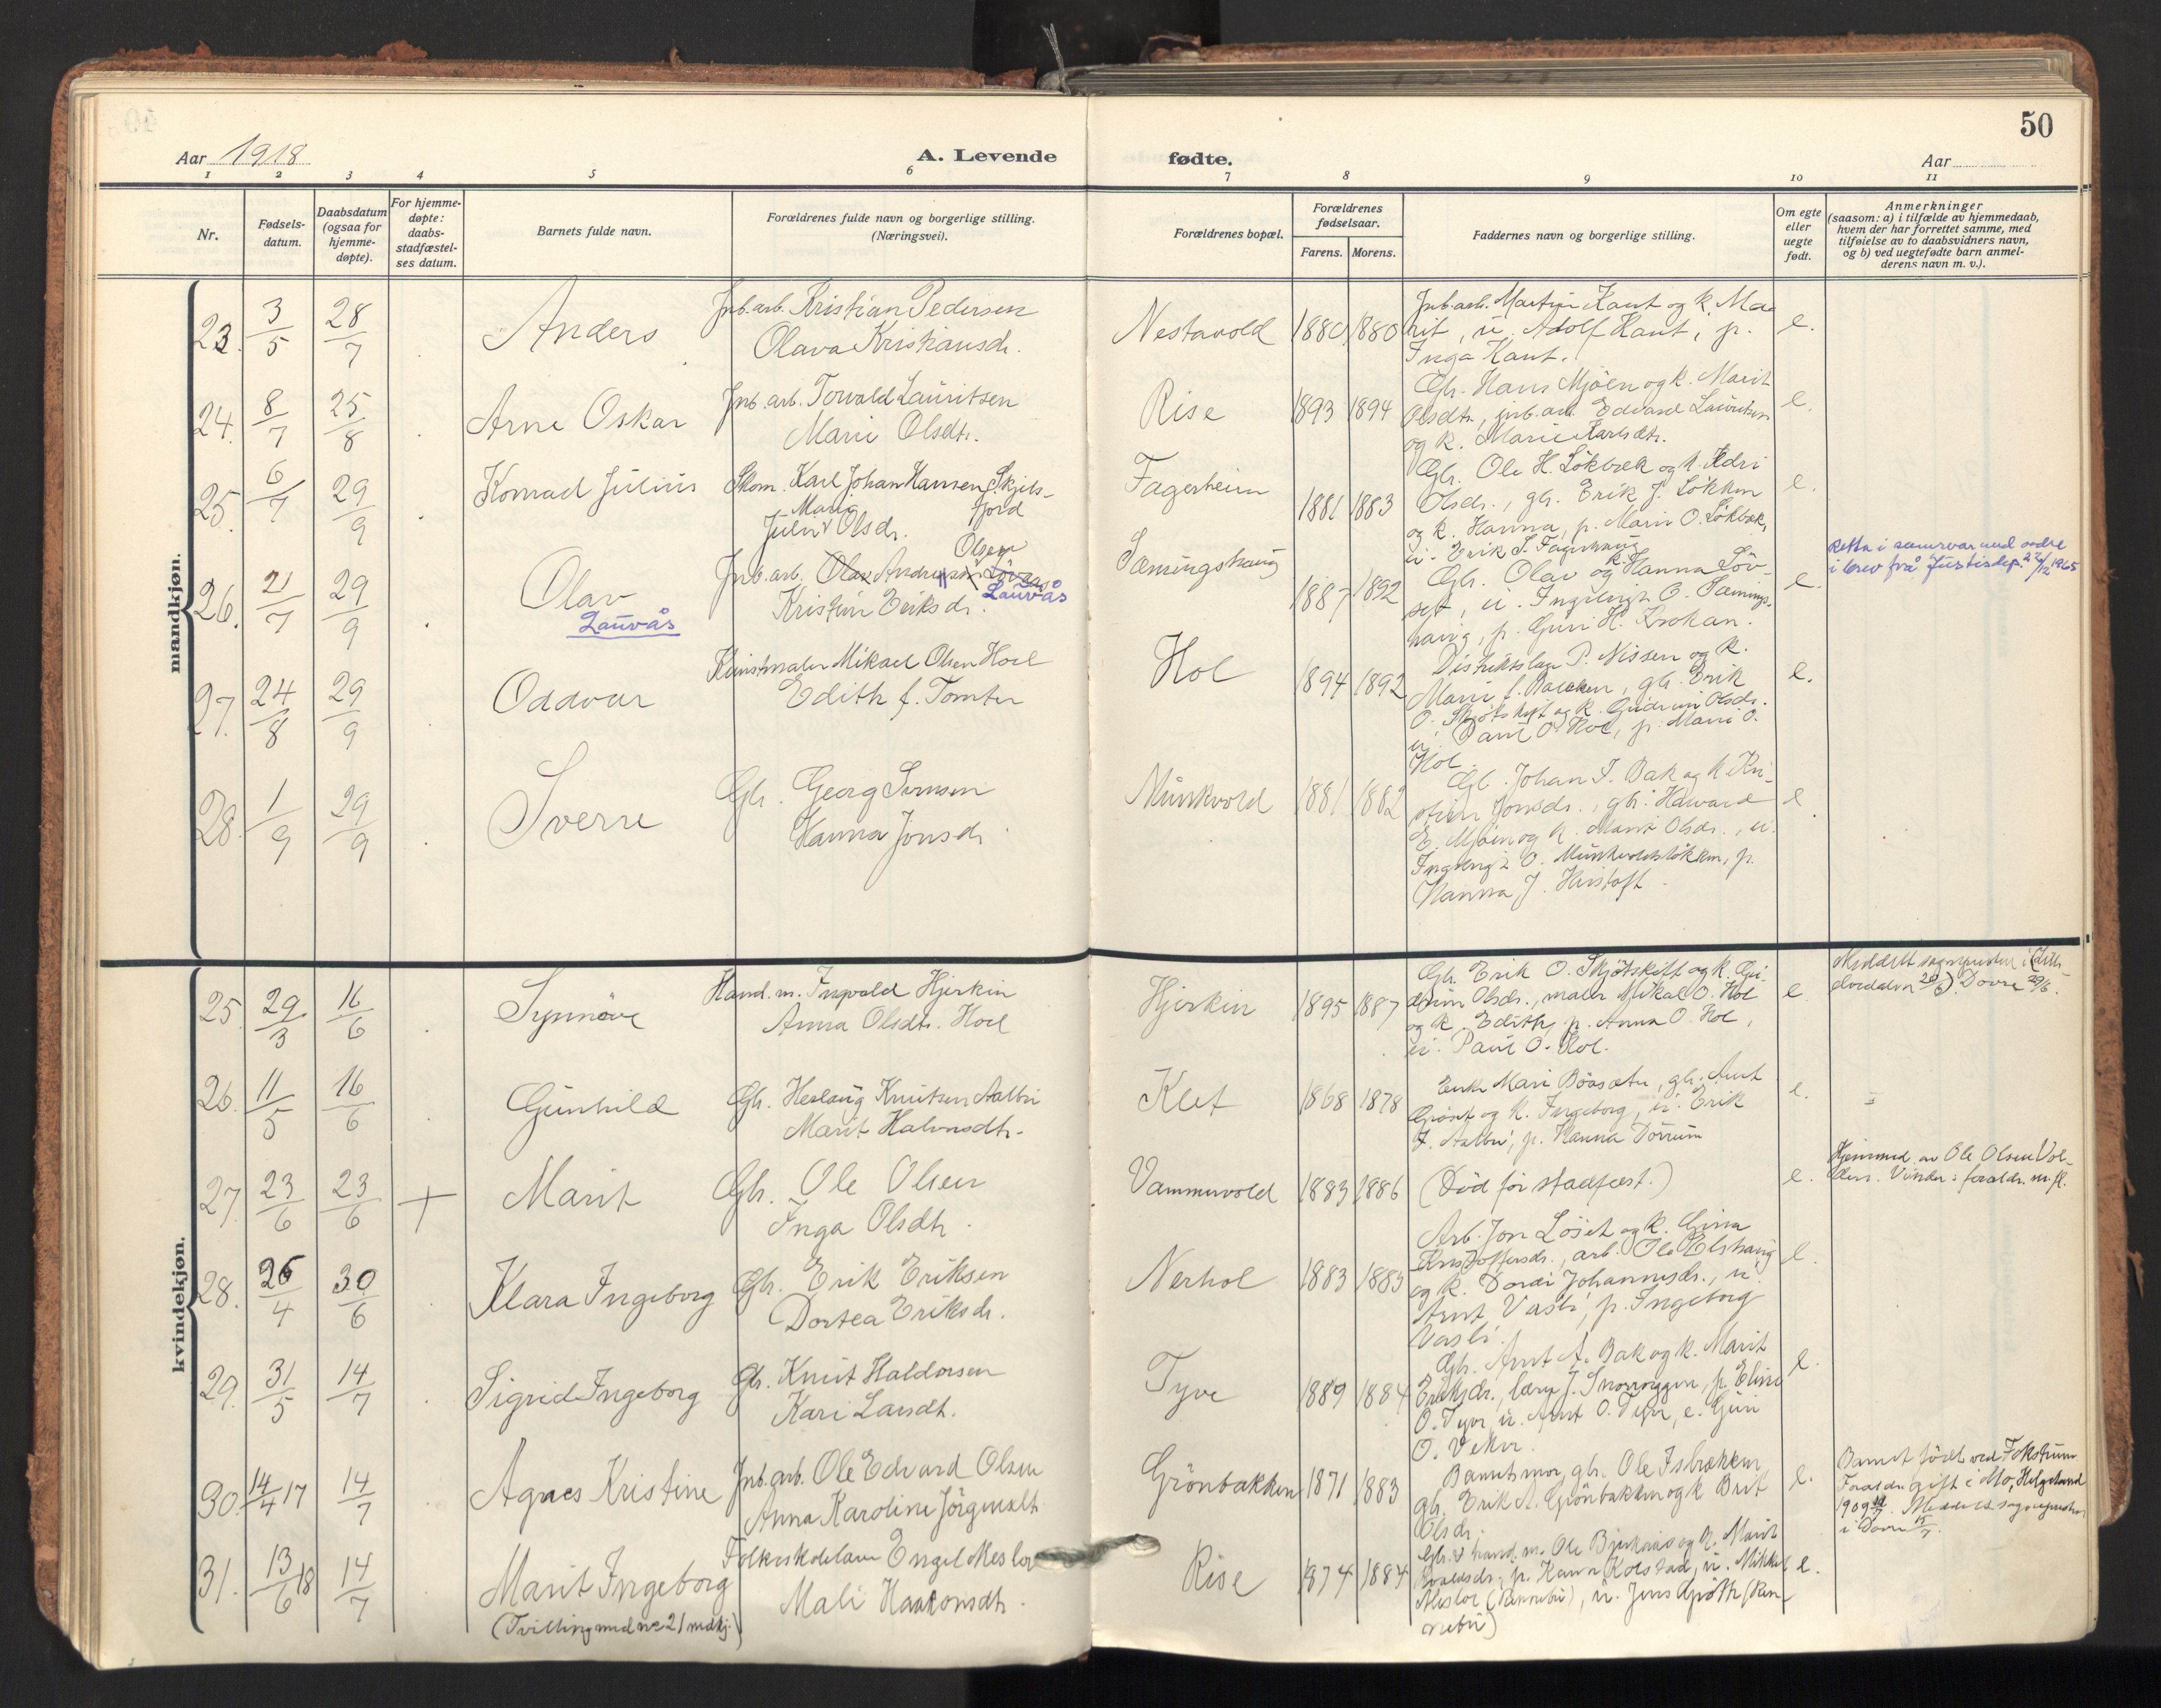 50
Aar 1918
A. Levende
fødte.
Aar
1 2 3 4 5 6 7 8 9 10 11
Nr.
Fødsels-
datum.
Daabsdatum
(ogsaa for
hjemme-
døpte).
For hjemme-
døpte:
daabs-
stadfæstel-
ses datum.
Barnets fulde navn.
Forældrenes fulde navn og borgerlige stilling.
(Næringsvei).
Forældrenes bopæl.
Forældrenes
fødselsaar.
Farens. Morens.
Faddernes navn og borgerlige stilling.
Om egte
eller
uegte
født.
Anmerkninger
(saasom: a) i tilfælde av hjemmedaab,
hvem der har forrettet samme, med
tilføielse av to daabsvidners navn,
og b) ved uegtefødte barn anmel-
derens navn m. v.).
mandkjøn.
23. 3/5 28/7 Anders
Jnb.arb. Kristian Pedersen
Olava Kristiansdr.
Nestavold 1880 1880
Jnb.arb. Martin Kant og k. Ma-
rit, u. Adolf Kant, p.
Inga Kant.
e.
24. 8/7 25/8 Arne Oskar
Jnb.arb. Torvald Lauritsen
Marie Olsdtr.
Rise 1893 1894
Gbr. Hans Mjöen og k. Marit
Olsdtr., jnb.arb. Edvard Lauritsen
og k. Marie Karlsdtr.
e.
25. 6/7 29/9 Konrad Julius
Skom. Karl Johan Hansen Skjels-
fjord
Marie
Julie Olsdr.
Fagerheim 1881 1883
Gbr. Ole H. Løkbæk og k.
Olsdr., gbr. Erik J. Løkken
og k. Hanna, p. Marie O. Løkbæk,
u. Erik S. Fagerhaug
e.
26. 21/7 29/9 Olav
Lauvås
Olsen
Jnb.arb. Olav Andreas Løvaas
Lauvås
Kristine Eriksdr.
Sæmingshaug 1887 1892
Gbr. Olav og k. Hanna Löv-
set, u. Ingebrigt O. Sæmings-
haug, p. Guri H. Krokan.
e.
Retta i samsvar med ordre
i brev frå Justisdep. 22/12 1965
27. 24/8 29/9 Oddvar
Kunstmaler Mikael Olsen Hoel
Edith f. Tomter
Hol 1894 1892
Distriktslæge P. Nissen og k.
Marie f. Backer, gbr. Erik
O. Skjøtskift og k. Gudrun Olsdr.
u. Paul O. Hol, p. Marie O.
Hol.
e.
28. 1/9 29/9 Sverre
Gbr. Georg Simensen
Hanna Jonsdr.
Munkvold 1881 1882
Gbr. Johan J. Bak og k. Kri-
stine Jonsdr., gbr. Havard
E. Mjöen og k. Marit Olsdr., u.
Ingebrigt O. Munkvoldsløkken, p.
Hanna J. Havstoft.
e.
kvindekjøn.
25. 29/3 16/6 Synnöve
Hand.m. Ingvald Hjerkin
Anna Olsdtr. Hoel
Hjerkin 1895 1887
Gbr. Erik O. Skjøtskift og k. Gu-
drun Olsdr., maler Mikal O. Hol
og k. Edith, p. Anna O. Hol,
u. Paul O. Hol.
e.
Meddelt sognepresten i Lille-
elvedalen 20/6. Dovre 29/6.
26. 11/5 16/6 Gunhild
Gbr. Herlaug Knutsen Aalbu
Marit Halvorsdtr.
Klet 1868 1878
Enke Mari Böasæter, gbr. Arnt
Grøset og k. Ingeborg, u. Erik
I. Aalbu, p. Hanna Dörrum
e.
27. 23/6 23/6 + Marit
Gbr. Ole Olsen
Inga Olsdtr.
Vammervold 1883 1886
(Død før stadfæst.)
e.
Hjemmed. av Ole Olsen Vol-
den. Vidner: foreldr. m.fl.
28. 26/4 30/6 Klara Ingeborg
Gbr. Erik Eriksen
Dortea Eriksdr.
Nerhol 1883 1885
Arb. Jon Löset og k. Gina
Kristoffersdr., arb. Ole Elshaug
og k. Dordi Johannesdr., u.
Arnt Vasli, p. Ingeborg
Vasli.
e.
29. 31/5 14/7 Sigrid Ingeborg
Gbr. Knut Haldorsen
Kari Larsdtr.
Tyve 1889 1884
Gbr. Arnt A. Bak og k. Marit
Eriksdr., lærer J. Snoveggen, p. Eline
O. Tyve, u. Arnt O. Tyve, e. Guri
O. Veker.
e.
30. 14/4 17 14/7 Agnes Kristine
Jnb.arb. Ole Edvard Olsen
Anna Karoline Jörgensdtr.
Grönbakken 1871 1883
Barnets mor, gbr. Ole Isbrekken,
gbr. Erik A. Grönbakken og k. Brit
Olsdr.
e.
Barnet født ved Fokstuen
Foreldr. gift i Mo, Helgeland
1909. Meddelt sogneprester
i Dovre 15/7.
31. 13/6 18 14/7 Marit Ingeborg
(Tvilling med no 21 mdkj.)
Folkeskolelærer Engel Mesloe
Mali Haakonsdtr.
Rise 1874 1884
Gbr. v hand.m. Ole Bjerkaas og k. Marit
p. Karen Kolstad, u. Mikkel
Mesloe (Rennebu), u. Jens Gjøtte (Ren-
nebu)
e.